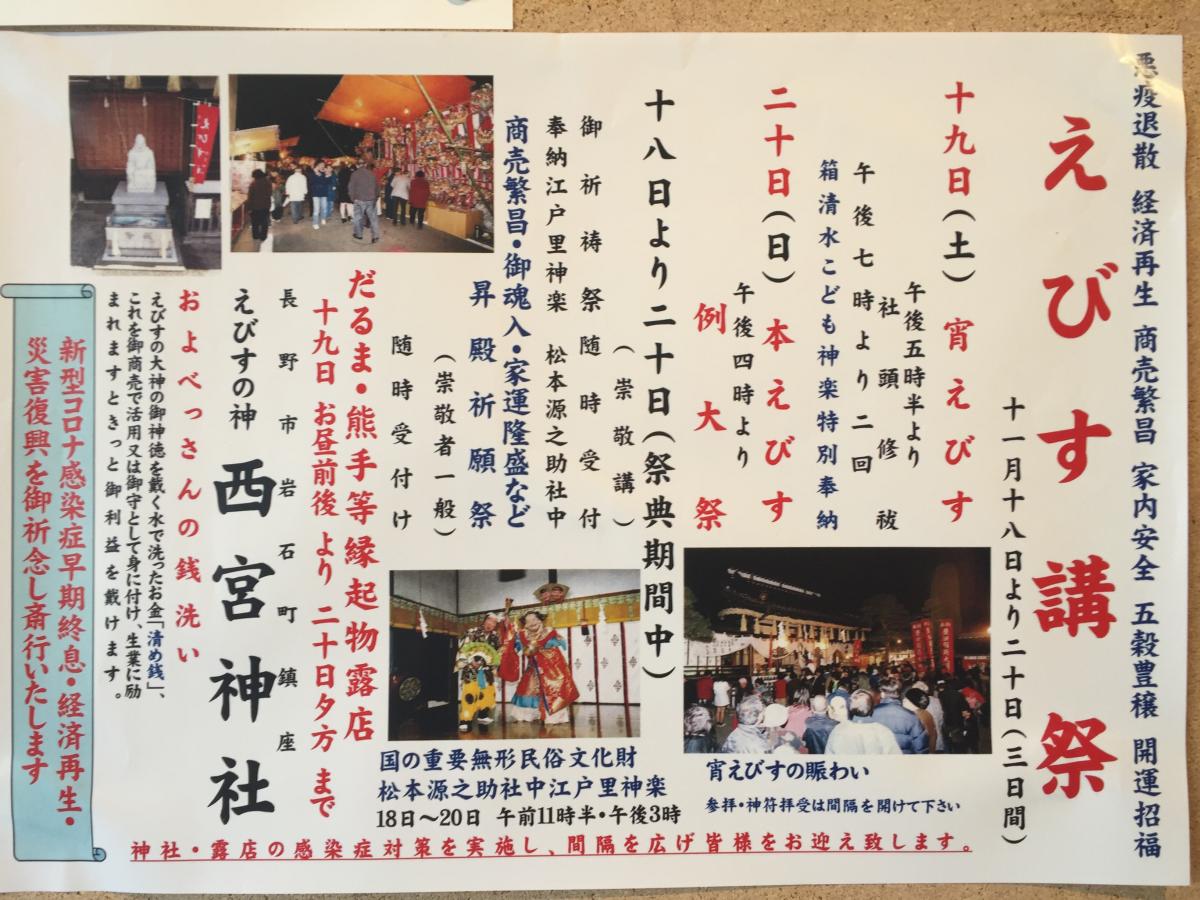 悪疫退散 経済再生 商売繁昌 家内安全 五穀豊穣 開運招福
えびす講祭
十一月十八日より二十日(三日間)
十九日(土)宵えびす
午後五時半より
社頭修祓
午後七時より二回
箱清水こども神楽特別奉納
二十日(日)本えびす
午後四時より
例大祭
十八日より二十日(祭典期間中)
(崇敬講)
御祈祷祭随時受付
奉納江戸里神楽 松本源之助社中
商売繁昌・御魂入・家運隆盛など
昇殿祈願祭
(崇敬者一般)
随時受付け
だるま・熊手等縁起物露店
十九日 お昼前後 より 二十日夕方 まで
長野市岩石町鎮座
えびすの神 西宮神社
およべっさんの銭洗い
えびすの大神の御神徳を戴く水で洗ったお金「清め銭」、
これを御商売で活用又は御守として身に付け、生業に励
まれますときっと御利益を戴けます。
新型コロナ感染症早期終息・経済再生・
災害復興を御祈念し斎行いたします
宵えびすの賑わい
参拝・神符拝受は間隔を開けて下さい
国の重要無形民俗文化財
松本源之助社中江戸里神楽
18日〜20日 午前11時半・午後3時
神社・露店の感染症対策を実施し、間隔を広げ皆様をお迎え致します。